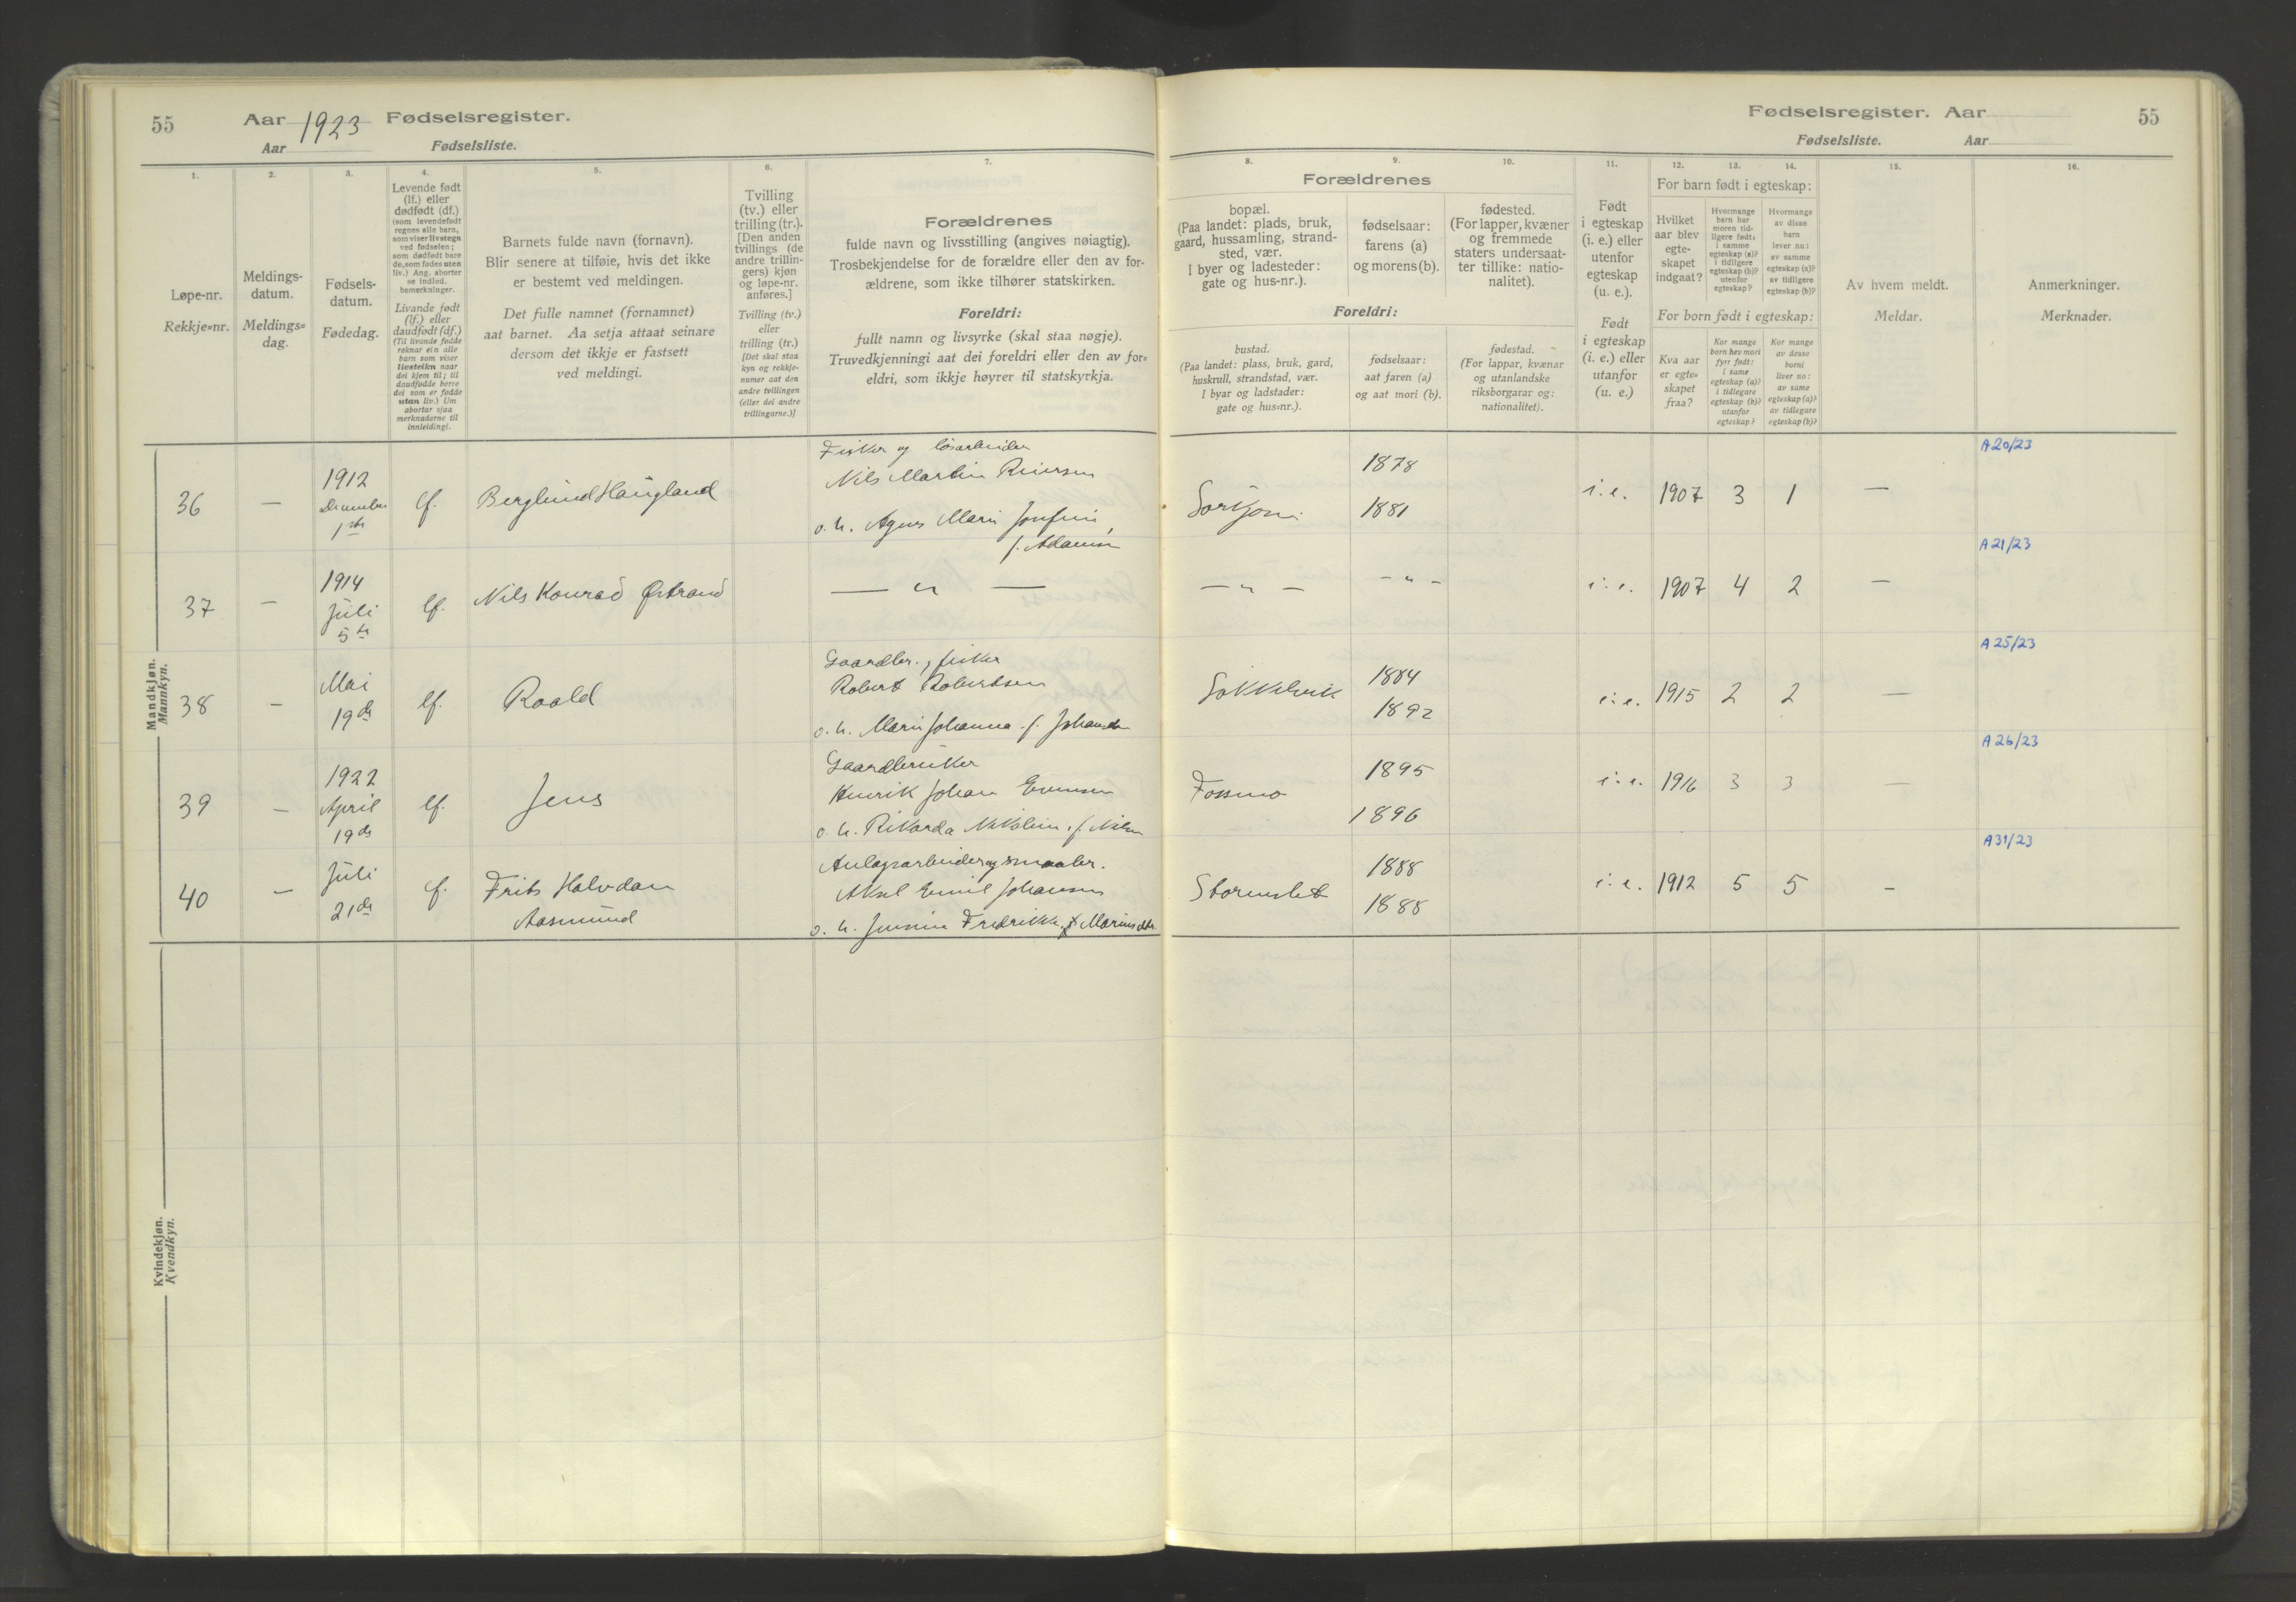 55 Aar 1923 Fødselsregister.
Aar Fødselsliste.
Fødselsregister. Aar 55
Fødselsliste. Aar
1. 2. 3. 4. 5. 6. 7. 8. 9. 10. 11. 12. 13. 14. 15. 16.
Løpe-nr.
Rekkje=nr.
Meldings-
datum.
Meldings=
dag.
Fødsels-
datum.
Fødedag.
Levende født
(lf.) eller
dødfødt (df.)
(som levendefødt
regnes alle barn,
som viser livstegn
ved fødselen;
som dødfødt bare
de, som fødes uten
liv.) Ang. aborter
se indled.
bemerkninger.
Livande født
(lf.) eller
daudfødt (df.)
(Til livande fødde
reknar ein alle
barn som viser
livsteikn naar
dei kjem til; til
daudfødde berre
dei som er fødde
utan liv.) Um
abortar sjaa
merknaderne til
innleidingi.
Barnets fulde navn (fornavn).
Blir senere at tilføie, hvis det ikke
er bestemt ved meldingen.
Det fulle namnet (fornamnet)
aat barnet. Aa setja attaat seinare
dersom det ikkje er fastsett
ved meldingi.
Tvilling
(tv.) eller
trilling (tr.).
[Den anden
tvillings (de
andre trillin-
gers) kjøn
og løpe-nr.
anføres.]
Tvilling (tv.)
eller
trilling (tr.)
[Det skal staa
kyn og rekkje-
numer aat den
andre tvillingen
(eller dei andre
trillingarne.)]
Forældrenes
fulde navn og livsstilling (angives nøiagtig).
Trosbekjendelse for de forældre eller den av for-
ældrene, som ikke tilhører statskirken.
Foreldri:
fullt namn og livsyrke (skal staa nøgje).
Truvedkjenningi aat dei foreldri eller den av for=
eldri, som ikkje høyrer til statskyrkja.
Forældrenes
bopæl.
(Paa landet: plads, bruk,
gaard, hussamling, strand-
sted, vær.
I byer og ladesteder:
gate og hus-nr.).
fødselsaar:
farens (a)
og morens (b).
fødested.
(For lapper, kvæner
og fremmede
staters undersaat-
ter tillike: natio-
nalitet).
Foreldri:
bustad.
(Paa landet: plass, bruk, gard,
huskrull, strandstad, vær.
I byar og ladstader:
gate og hus=nr.).
fødselsaar:
aat faren (a)
og aat mori (b).
fødestad.
(For lappar, kvænar
og utanlandske
riksborgarar og:
nationalitet).
Født
i egteskap
(i. e.) eller
utenfor
egteskap
(u. e.).
Født
i egteskap
(i. e.) eller
utanfor
(u. e.)
For barn født i egteskap:
Hvilket
aar blev
egte-
skapet
indgaat?
Hvormange
barn har
moren tid-
ligere født:
i samme
egteskap (a)?
i tidligere
egteskap (b)?
utenfor
egteskap?
Hvormange
av disse
barn
lever nu:
av samme
egteskap (a)?
av tidligere
egteskap (b)?
For born født i egteskap:
Kva aar
er egte=
skapet
fraa?
Kor mange
born hev mori
fyrr født:
i same
egteskap (a)?
i tidlegare
egteskap (b)?
utanfor
egteskap?
Kor mange
av desse
borni
liver no:
av same
egteskap (a)?
av tidlegare
egteskap (b)?
Av hvem meldt.
Meldar.
Anmerkninger.
Merknader.
Mandkjøn.
Mannkyn.
36 — 1912 December 1ste lf. Berglund Haugland
Fisker og løsarbeider
Nils Martin Reiersen
o. h. Agnes Marie Josefine,
f. Adamsen
1878
1881
i. e. 1907 3 1 —
A 20/23
37 — 1914 Juli 5te lf. Nils Konrad Østrand
— " —
— " — — " — i. e. 1907 4 2 —
A 21/23
38 — Mai 19de lf. Roald
Gaardbr., fisker
Robert Robertsen
o. h. Marie Johanna f. Johansen
Sokkelvik 1884
1892
i. e. 1915 2 2 —
A 25/23
39 — 1922 April 19de lf. Jens
Gaardbruker
Henrik Johan Evensen
o. h. Rikarda Nikoline, f. Nilsen
Fossmo 1895
1896
i. e. 1916 3 3 —
A 26/23
40 — Juli 21de lf. Frits Halvdan
Aasmund
Anlægsarbeider og smaabr.
Aksel Emil Johansen
o. h. Jensine Fredrikke f. Mariusdtr.
Storenslet 1888
1888
i. e. 1912 5 5 —
A 31/23
Kvindekjøn.
Kvendkyn.